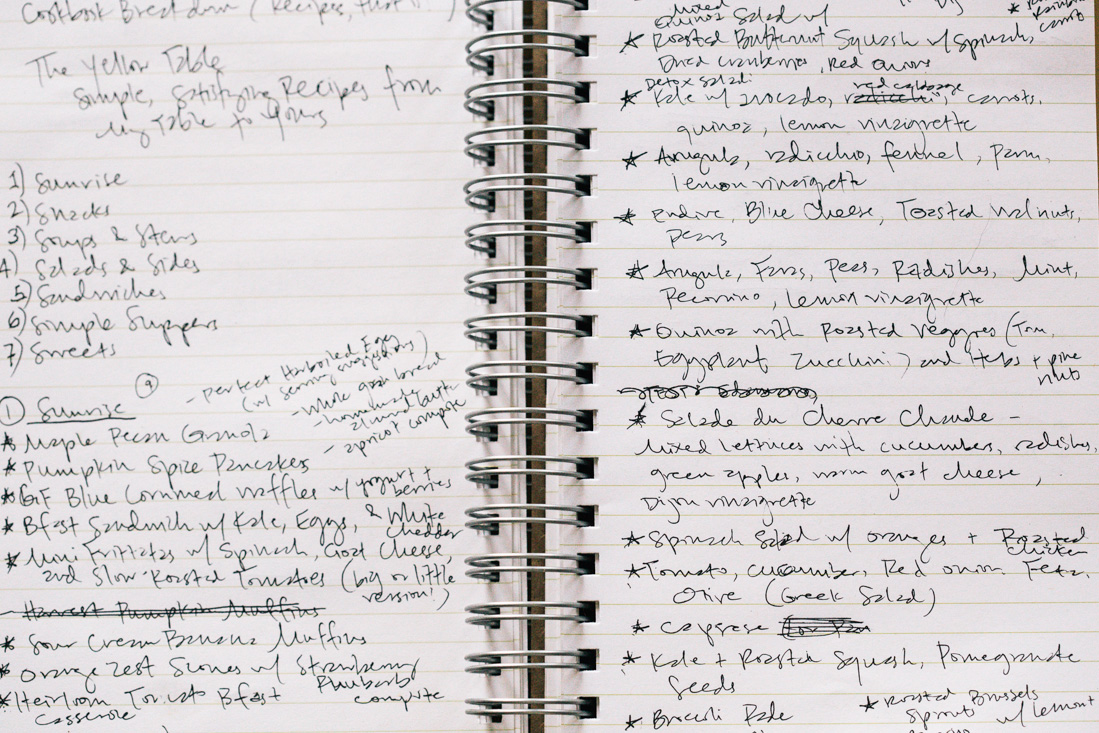 Cookbook Breakdown (Recipes, that is!)
The Yellow Table
Simple, Satisfying Recipes from
My Table to Yours
1) Sunrise
2) Snacks
3) Soups & Stews
4) Salads & Sides
5) Sandwiches
6) Simple Suppers
7) Sweets
9
- perfect Harboiled Eggs
(w/ serving variations)
- whole grain bread
- homemade almond butter
- apricot compote
1 Sunrise
* Maple Pecan Granola
* Pumpkin Spice Pancakes
* GF Blue Cornmeal waffles w/ yogurt +
berries
* Bfast Sandwich w/ Kale, Eggs, & White
Cheddar
* Mini Frittatas w/ Spinach, Goat Cheese,
and Slow Roasted Tomatoes (big or little
version!)
Harvest Pumpkin Muffins
* Sour Cream Banana Muffins
* Orange Zest Scones w/ Strawberry
Rhubarb compote
* Heirloom Tomato Bfast
casserole
Mixed
Quinoa Salad w/
* Roasted Butternut Squash w/ Spinach,
Dried cranberries, Red onions
Detox Salad:
red cabbage
* Kale w/ avocado, radicchio, carrots,
quinoa, lemon vinaigrette
* Arugula, radicchio, fennel, parm,
lemon vinaigrette
* Endive, Blue Cheese, Toasted Walnuts,
pears
* Arugula, Favas, Peas, Radishes, Mint,
Pecorino, lemon vinaigrette
* Quinoa with Roasted Veggies (Tom,
Eggplant Zucchini) and Herbs + pine
nuts
* Salade du Chevre Chaude -
Mixed lettuces with cucumbers, radishes,
green apples, warm goat cheese,
Dijon vinaigrette
* Spinach Salad w/ oranges + Roasted
Chicken
* Tomato, cucumber, Red onion. Feta,
Olive (Greek Salad)
* Caprese
* Kale + Roasted Squash, Pomegranate
Seeds
* Broccoli Rabe
* Roasted Brussels
Sprouts w/ lemon